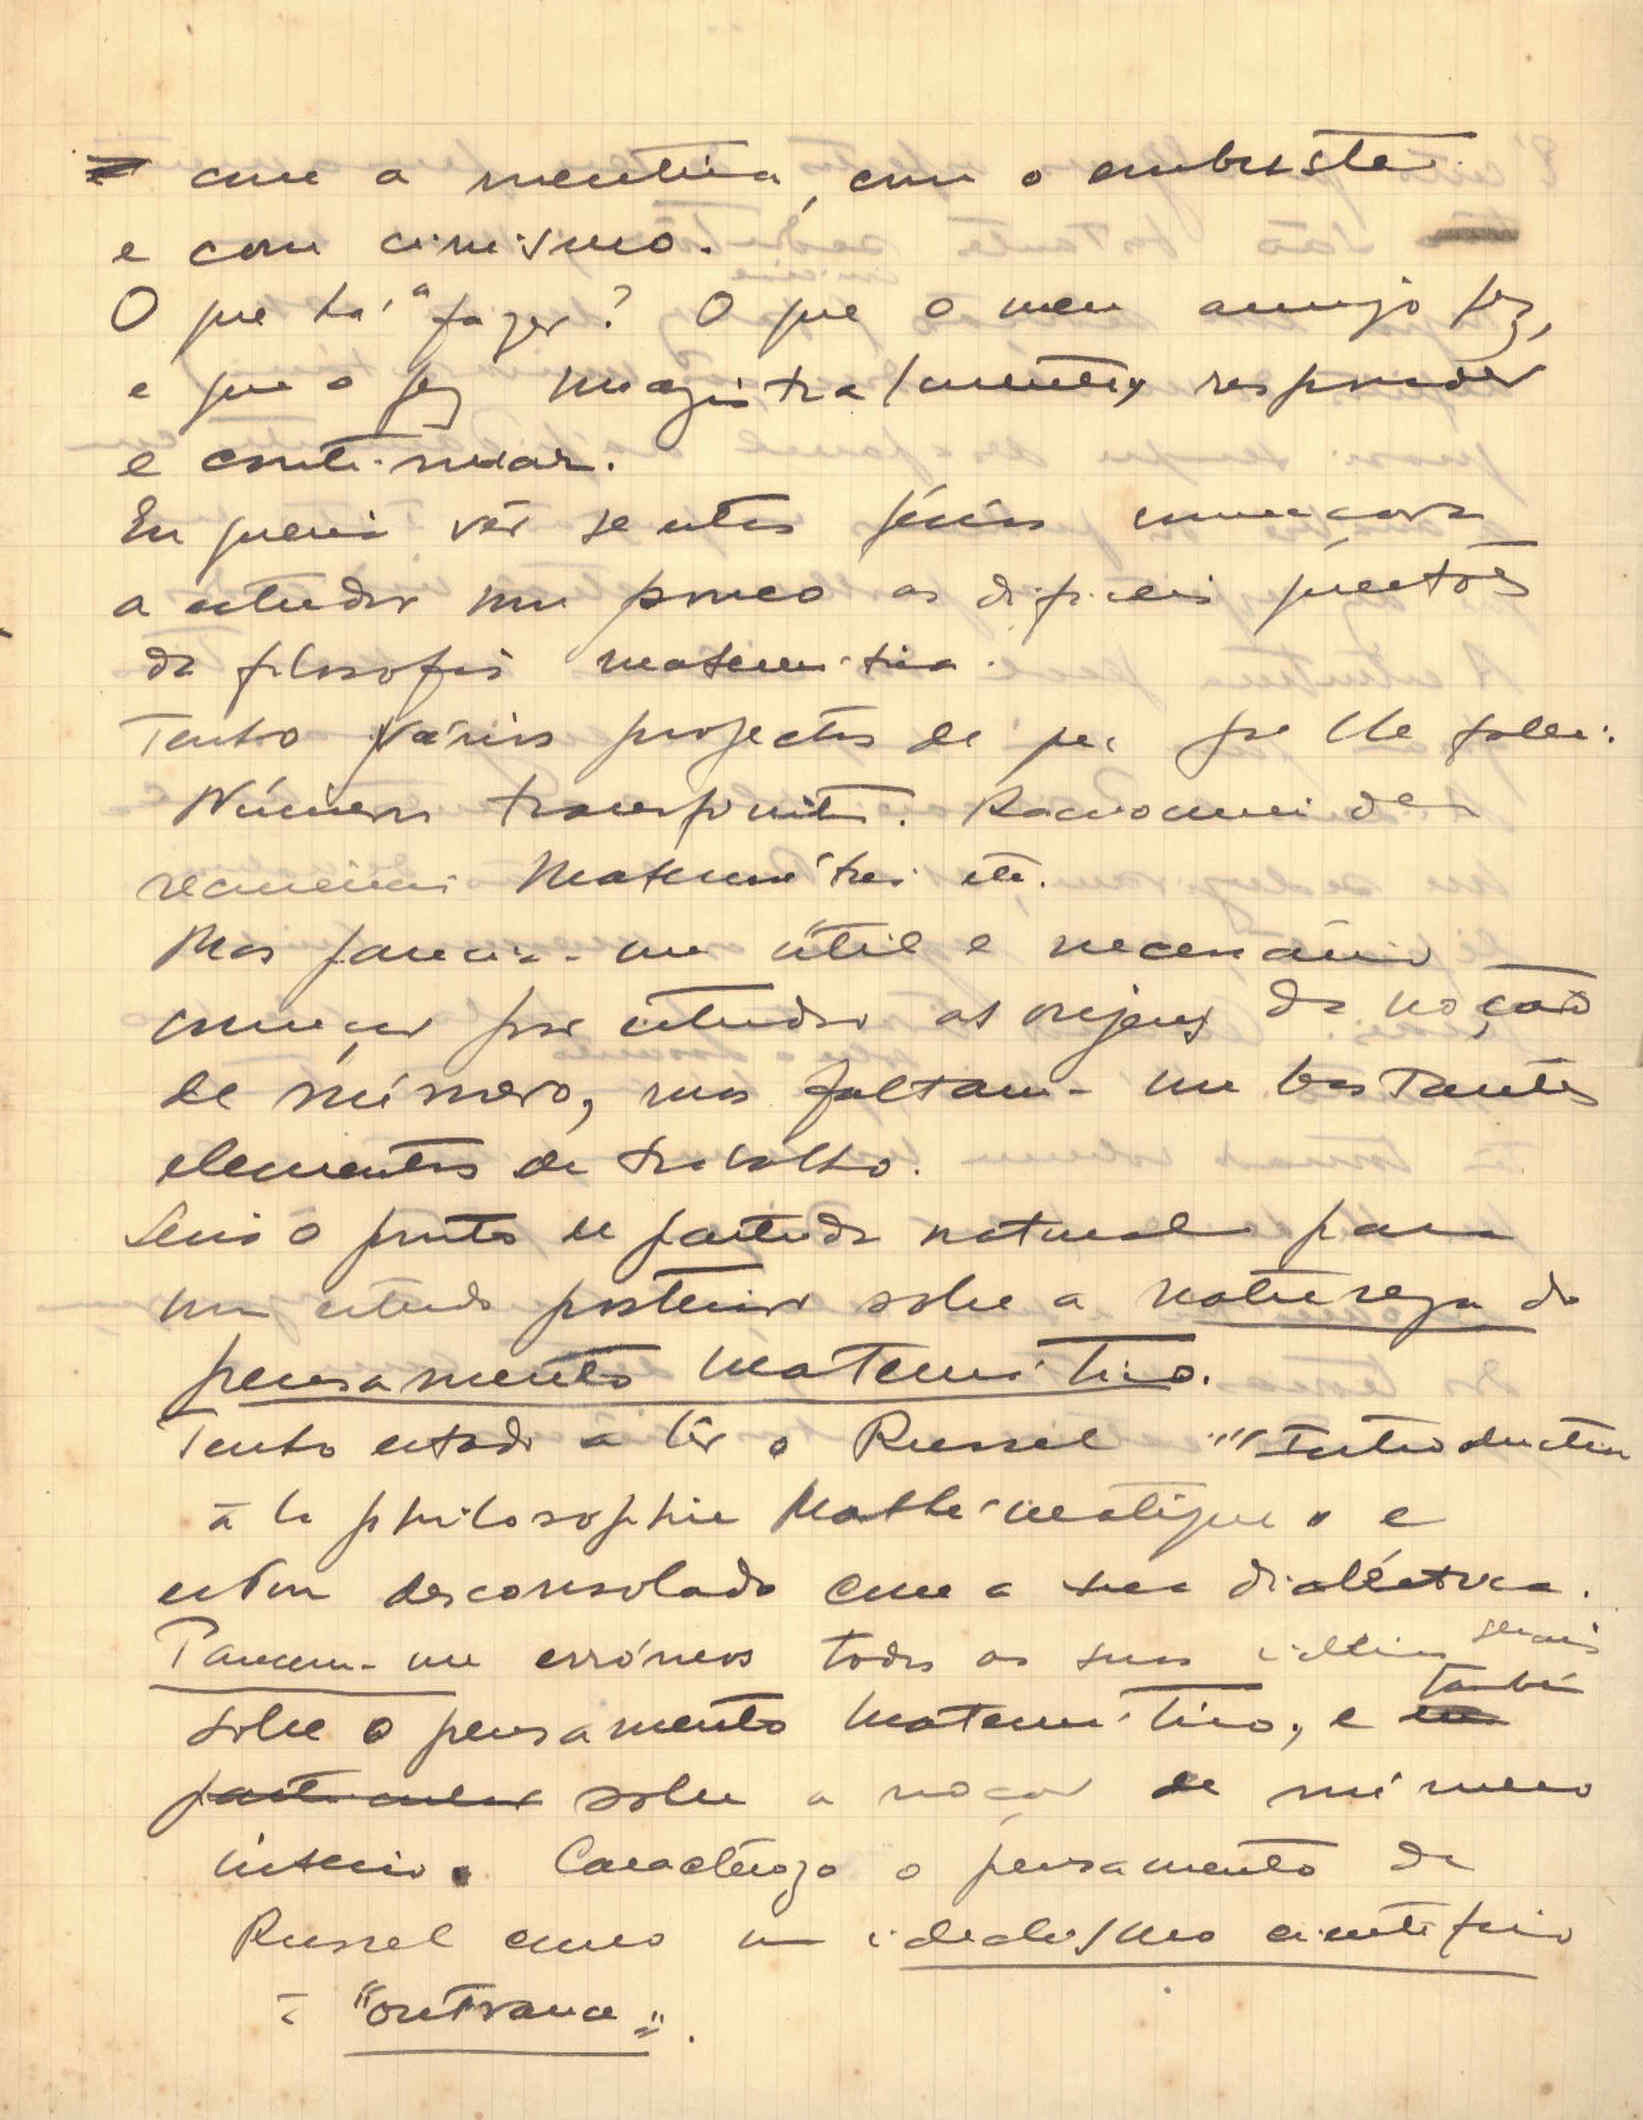 com a mentira, com o embuste
e com cinismo.
O que há a fazer? O que o meu amigo fez,
e que o fez magistralmente, responder
e continuar.
Eu queria vêr se estas férias começava
a estudar um pouco as dificeis questões
da filosofia matemática.
Tenho vários projectos de que lhe falei:
Números transfinitos. Raciocinio das
Matemáticas etc.
Mas parecia-me útil e necessário
começar por estudar as origens da noção
de número, mas faltam-me bastantes
elementos de trabalho.
Seria o ponto de partida natural para
um estudo posterior sobre a natureza do
pensamento matemático.
Tenho estado a lêr o Russel "Introduction
à la philosophie Mathématique" e
estou desconsolado com a sua dialéctica.
Parecem-me erróneos todos as suas gerais
sobre o pensamento Matemático, e também
particular sobre a noção de número
inteiro. Caracterizo o pensamento de
Russel como um idealismo cientifico
à "outrance".